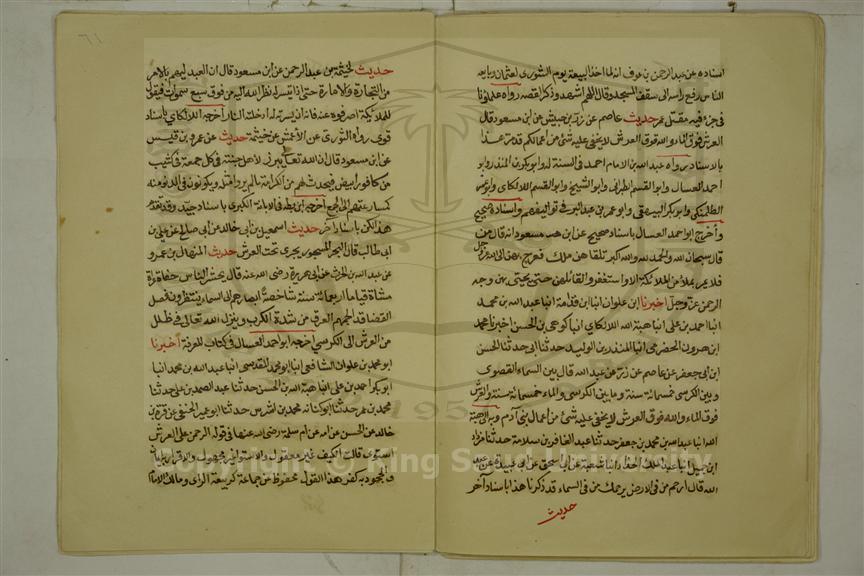 اسناده عن عبد الرحمن بن عوف انه لما اخذ البيعة يوم الشورى لعثمان وبايعه
الناس رفع راسه الى سقف المسجد وقال اللهم اشهد وذكر القصة رواه
في جزء فيه مقتل عمر حديث عاصم عن زر بن حبيش عن ابن مسعود قال
العرش فوق الماء والله فوق العرش لا يخفى عليه شئ من اعمالكم
بالاسناد رواه عبد الله بن الامام احمد في السنة له وابو بكر بن المنذر وابو
احمد العسال وابو القسم الطبراني وابو الشيخ وابو القسم اللالكاي وابو عمر
الطلمنكي وابو بكر البيهقي وابو عمر بن عبد البر في تواليفهم واسناده صحيح
وأخرج ابو احمد العسال باسناد صحيح عن ابن مسعود انه قال من
قال سبحان الله والحمد لله والله اكبر تلقاهن ملك فعرج بهن الى الله عز وجل
فلا يمر بملأ من الملائكة الا واستغفروا لقائلهن حتى يحيى بهن وجه
الرحمن عز وجل اخبرنا ابن علوان انبا ابن قدامة انبا عبد الله بن محمد
انبا احمد بن علي انبا هبة الله اللالكاي انبا كوهي بن الحسن اخبرنا محمد
ابن هرون الحضرمي انبا المنذر بن الوليد حدثنا ابي حدثنا الحسن
ابن ابي جعفر عن عاصم عن زر عن عبد الله قال بين السماء القصوى
وبين الكرسي خمسمائة سنة وما بين الكرسي والماء خمسمائة سنة والعرش
فوق الماء والله فوق العرش لا يخفى عليه شئ من اعمال بني آدم وبه الى هبة
الله انبا عبد الله بن محمد بن جعفر حدثنا عبد الغافر بن سلامة حدثنا مزداد
ابن جميل انبا عبد الملك انبا شعبة عن ابي اسحق عن ابي عبيدة عن عبد
الله قال ارحم من في الارض يرحمك من في السماء قد ذكرنا هذا باسناد آخر
حديث
٦١
حديث لخيثمة بن عبد الرحمن عن ابن مسعود قال ان العبد ليهم بالامر
من التجارة والامارة حتى اذا تيسر له نظر الله اليه من فوق سبع سموات فيقول
للملائكة اصرفوه عنه فانه ان يسرته له ادخلته النار اخرجه اللالكاي باسناد
قوي رواه الثوري عن الاعمش عن خيثمة حديث عن عمرو بن قيس
عن ابن مسعود قال ان الله تعالى يبرز لاهل جنته في كل جمعة في كثيب
من كافور ابيض فيحدث لهم من الكرامة ما لم يروا مثله ويكونون في الدنو منه
كمسارعتهم الى الجمع اخرجه ابن بطه في الابانة الكبرى باسناد جيد وقد تقدم
هذا لكن باسناد آخر حديث اسمعيل بن ابي خالد عن ابي صالح عن علي بن
ابي طالب قال البحر المسجور يجري تحت العرش حديث المنهال بن عمرو
عن عبد الله بن الحرث عن ابي هريرة رضي الله عنه قال يحشر الناس حفاة عراة
مشاة قياما اربعمائة سنة شاخصة ابصارهم الى السماء ينتظرون فصل
القضا قد الجمهم العرق من شدة الكرب وينزل الله تعالى في ظلل
من العرش الى الكرسي اخرجه ابو احمد العسال في كتاب المعرفة أخبرنا
ابو محمد بن علوان الشافعي انبا ابو محمد المقدسي انبا عبد الله بن محمد انبا
ابو بكر احمد بن علي انبا هبة الله بن الحسن حدثنا عبد الصمد بن علي حدثنا
محمد بن عمر حدثنا ابو كنانه محمد بن اشرس حدثنا ابو عمير الحنفي عن قرة بن
خالد عن الحسن عن امه عن ام سلمة رضي الله عنها في قوله الرحمن على العرش
استوى قالت الكيف غير معقول والاستواء غير مجهول والاقرار به ايمان
والجحود به كفر هذا القول محفوظ عن جماعة كربيعة الراى ومالك الامام
Copyright © King Saud University
1957